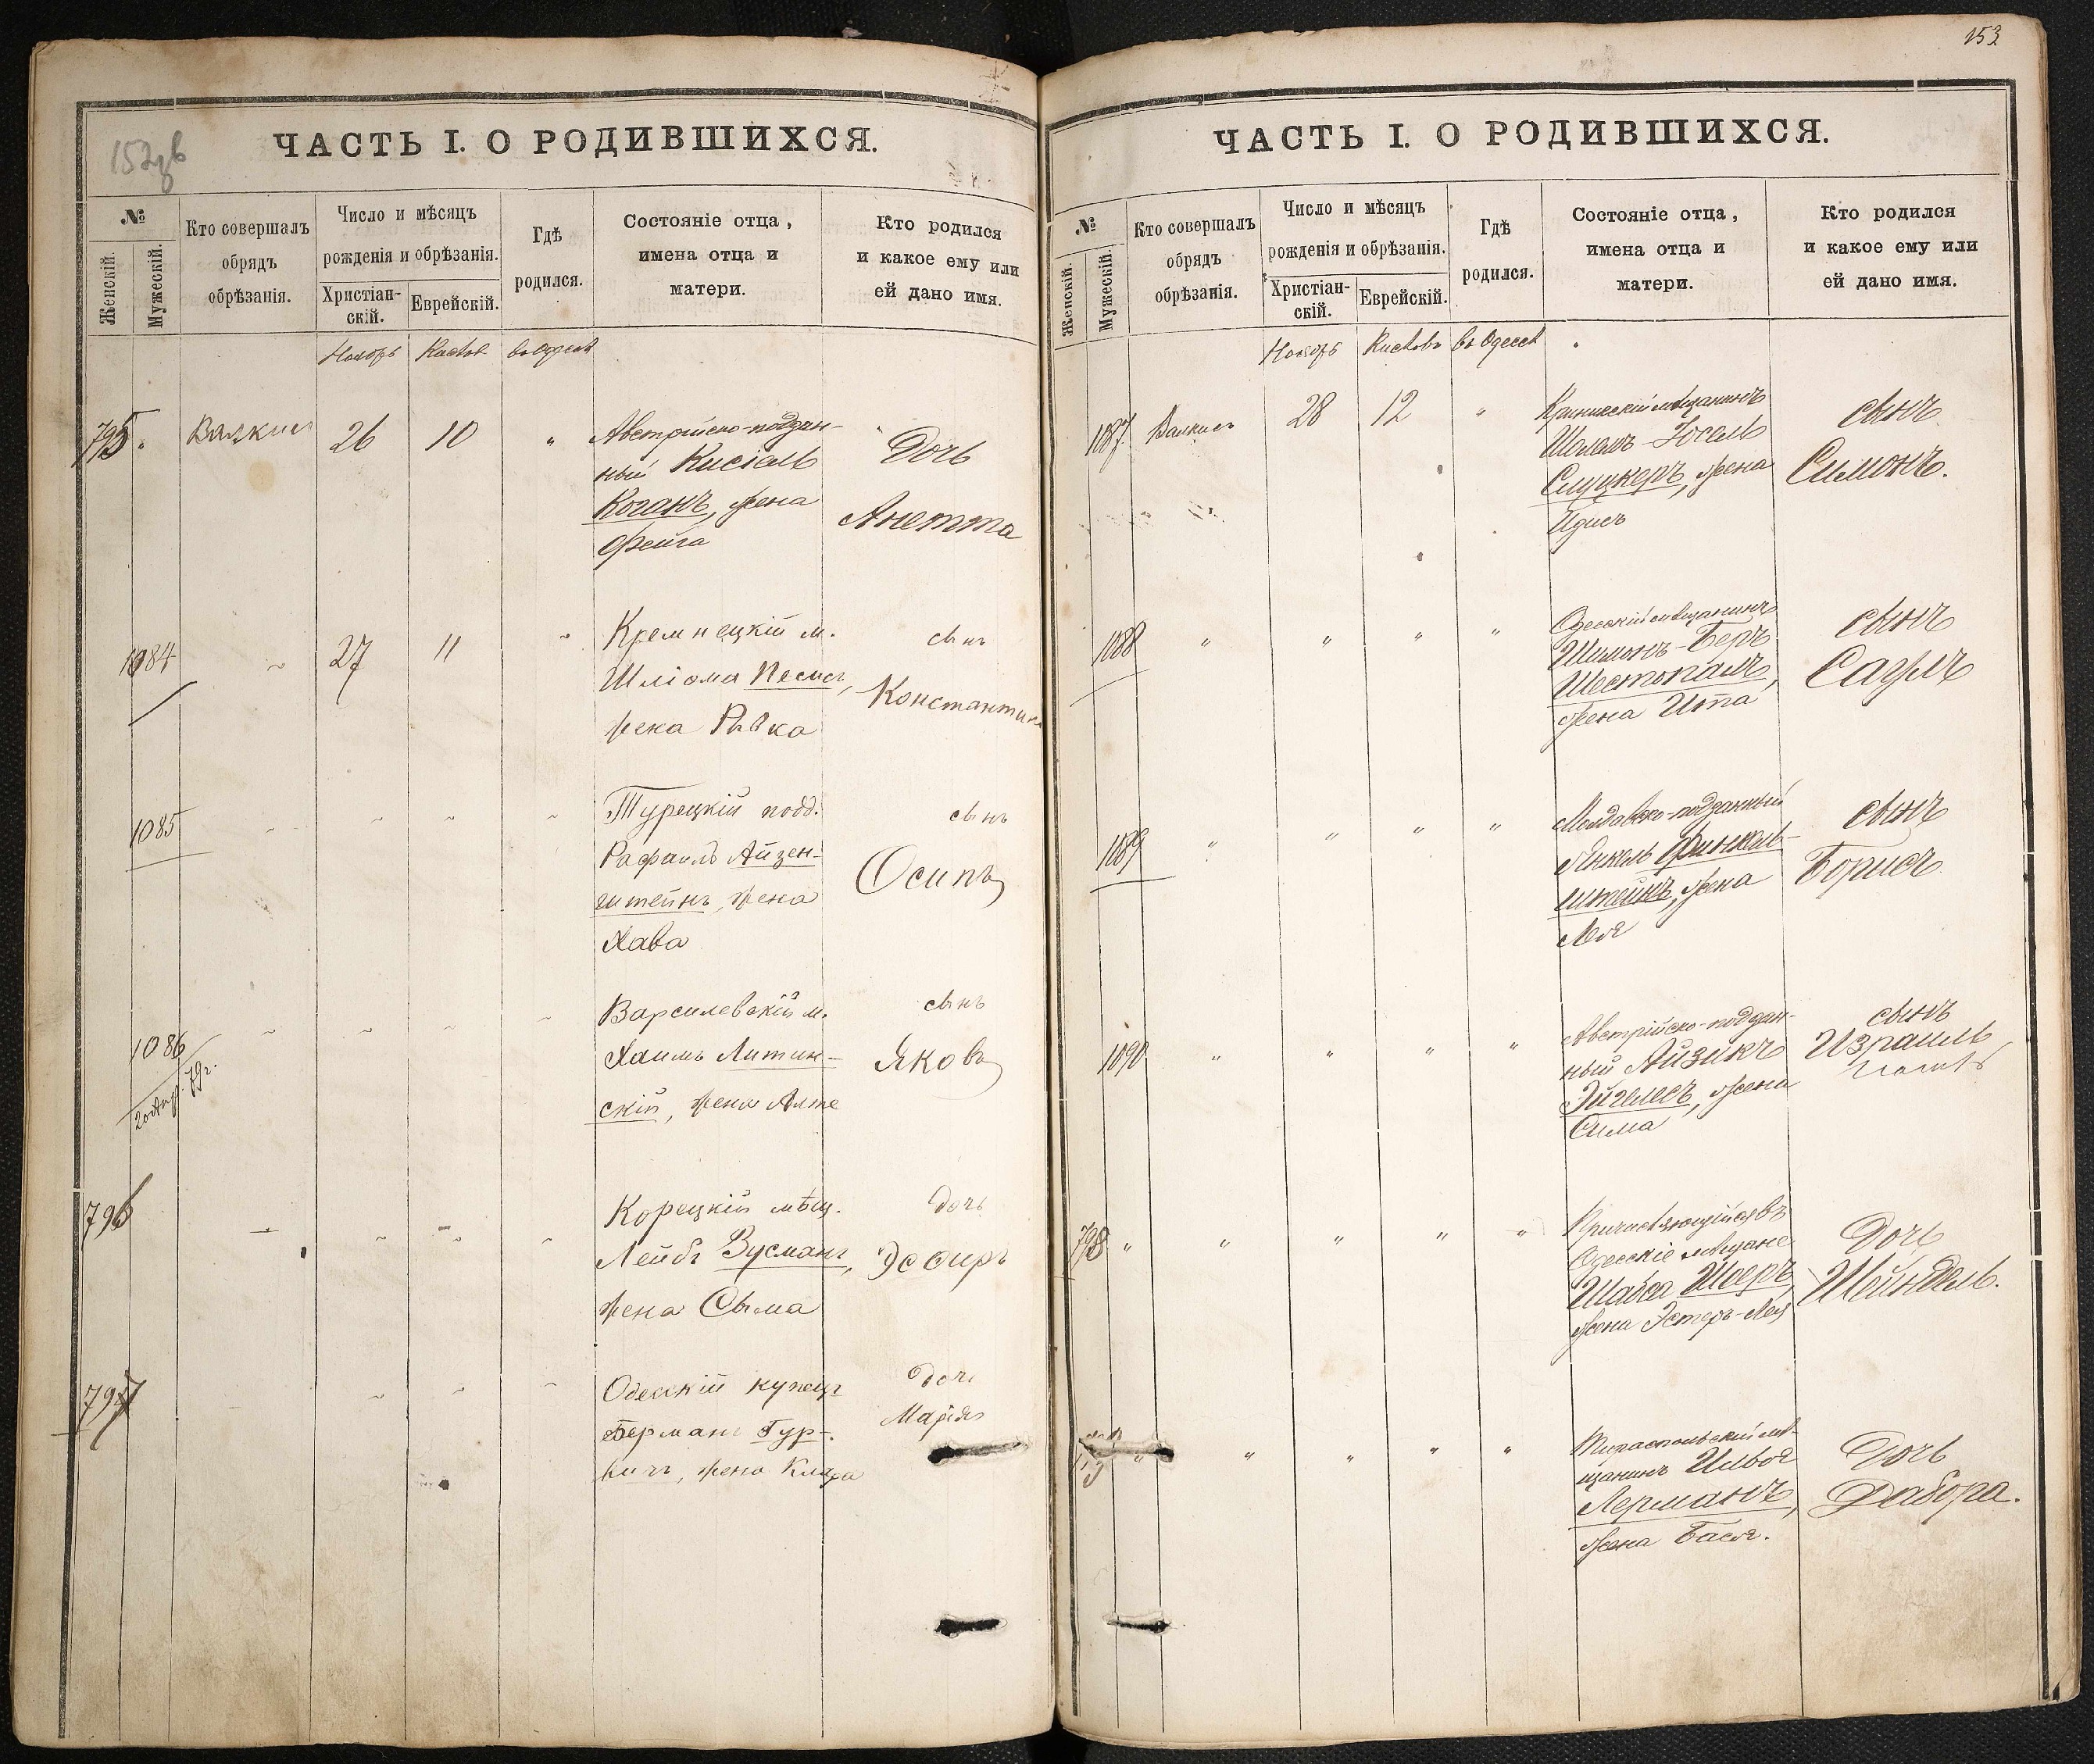 152об
ЧАСТЬ I. О РОДИВШИХСЯ.
№
Женскій.
Мужескій.
Кто совершалъ
обрядъ
обрѣзанія.
Число и мѣсяцъ
рожденія и обрѣзанія.
Христіан-
скій.
Еврейскій.
Гдѣ
родился.
Состояніе отца,
имена отца и
матери.
Кто родился
и какое ему или
ей дано имя.
Ноябрь Кислев в Одессѣ
795. 26 10 " Австрійско-поддан-
ный Кисіель
Коганъ, жена
Фейга
Дочь
Анетта
1084 27 11 Кремнецкій м.
Шліома Песисъ,
жена Рывка
сынъ
Константинъ
1085 Турецкій подд.
Рафаилъ Айзен-
штейнъ, жена
Хава
сынъ
Осипъ
1086 м.
Хаимъ Литин-
скій, жена
сынъ
Яковъ
796 Корецкій мѣщ.
Лейбъ Зусманъ,
жена Сыма
дочь
Эсѳирь
797 Одесскій купецъ
Германъ Гур-
вичъ, жена Клара
дочь
Марія
153
ЧАСТЬ I. О РОДИВШИХСЯ.
№
Женскій.
Мужескій.
Кто совершалъ
обрядъ
обрѣзанія.
Число и мѣсяцъ
рожденія и обрѣзанія.
Христіан-
скій.
Еврейскій.
Гдѣ
родился.
Состояніе отца,
имена отца и
матери.
Кто родился
и какое ему или
ей дано имя.
Ноябрь Кислевъ в Одессѣ
1087 28 12 " мѣщанинъ
Іосель
Слуцкеръ, жена
Идись
сынъ
Симонъ.
1088 " " " " Одесскій мѣщанинъ
Шимонъ-Беръ
Шестопалъ,
жена Ита
сынъ
1089 " " " " Молдавско-подданный
Янкель Финкель-
штейнъ, жена
Лея
сынъ
Борисъ
1090 " " " " Австрійско-поддан-
ный Айзикъ
жена
Сима
сынъ
Израиль
798 " " " " " Причисляющійся въ
Одесскіе мѣщане
Шабса
жена Эстеръ-Лея
Дочь
Шейндель.
" " " " " Тираспольскій мѣ-
щанинъ
Лерманъ,
жена Бася.
Дочь
Дабора.